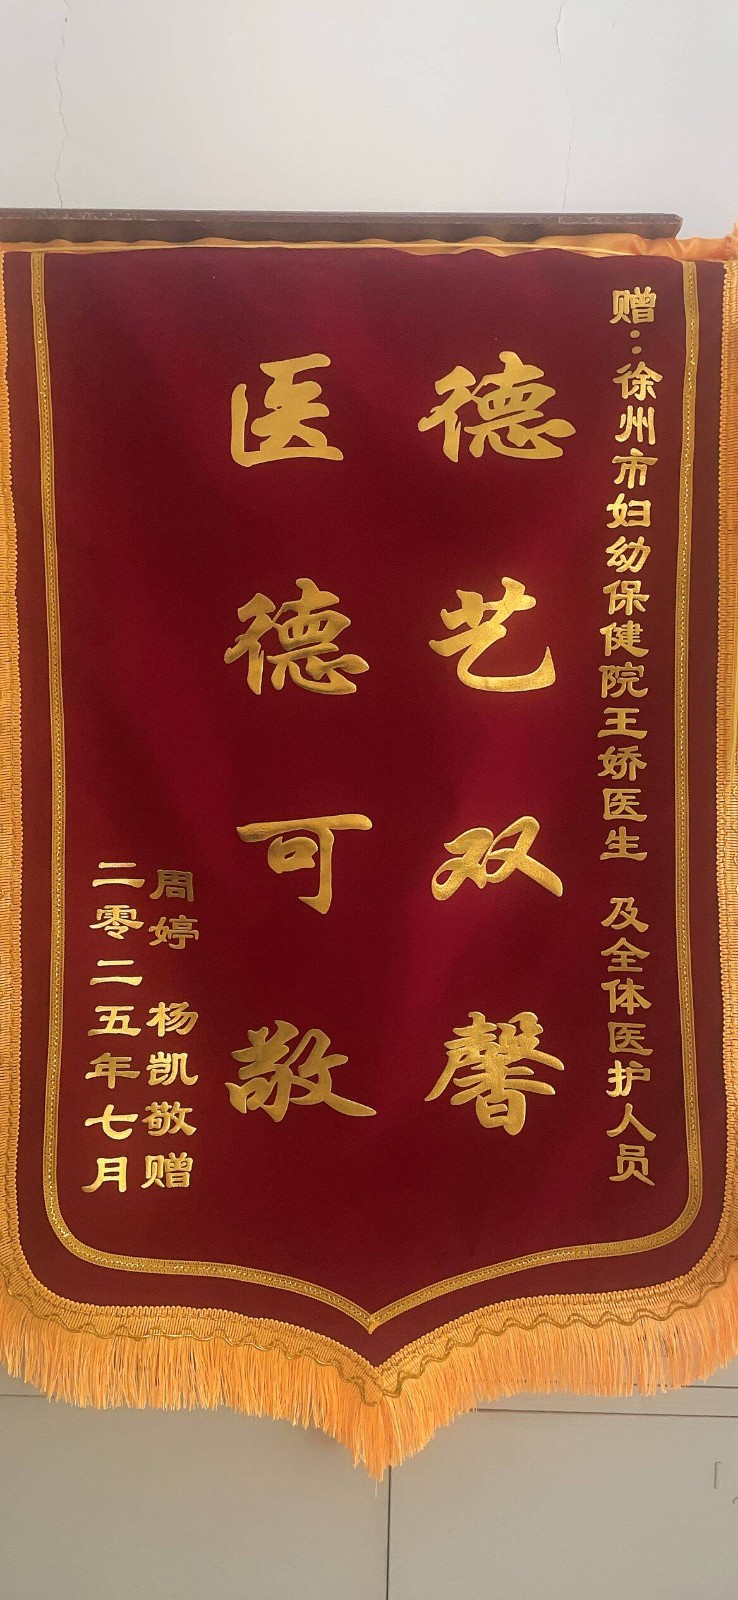 赠：徐州市妇幼保健院王娇医生 及全体医护人员
德艺双馨
医德可敬
周婷 杨凯敬赠
二零二五年七月